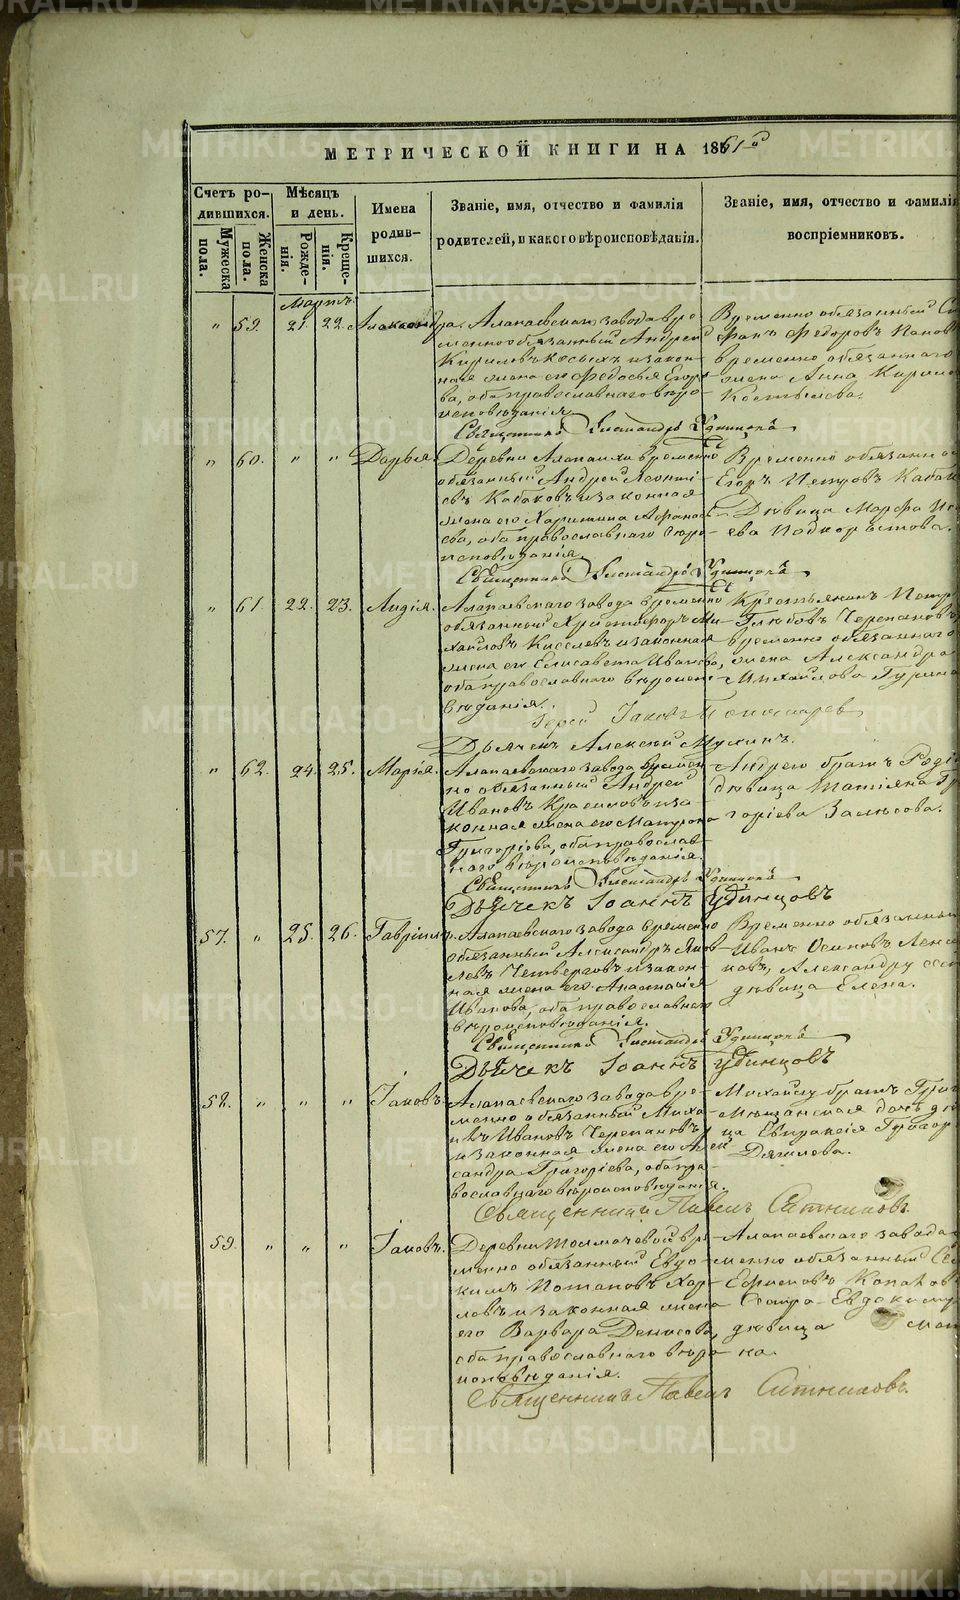 МЕТРИЧЕСКОЙ КНИГИ НА 1861й
Счетъ ро-
дившихся.
Мѣсяцъ
и день.
Имена
родив-
шихся.
Званіе, имя, отчество и фамилія
родителей, и какого вѣроисповѣданія.
Званіе, имя, отчество и фамилія
воспріемниковъ.
Мужеска
пола.
Женска
пола.
Рожде-
нія.
Креще-
нія.
Мартъ.
" 59. 21. 22. Александра.
Алапаевскаго завода вре-
менно обязанный Андрей
Кириловъ Косыхъ и закон-
ная жена его Федосья Егоро-
ва, оба православнаго вѣро-
исповѣданія.
Временно обязанный
Федоровъ Панов
временно обязаннаго
жена Анна Кирило
Костылева.
Священникъ Александръ Удинцовъ
" 60. " " Дарья.
Деревни Алапаихи временно
обязанный Андрей Леонтьі-
евъ Кабаковъ и законная
жена его Харитина Афанась-
ева, оба православнаго вѣро-
исповѣданія.
Временно обязанно
Егоръ Петровъ Кабак
Дѣвица Марфа
ева Подкорытова.
Священникъ Александръ Удинцовъ
" 61. 22. 23. Лидія.
Алапаевскаго завода временно
обязанный Христофоръ Ми-
хайловъ Киселевъ и законная
жена его Елисавета Иванова,
оба православнаго вѣроиспо-
вѣданія.
Крестьянинъ Петр
Глѣбовъ Черепановъ
временно обязаннаго
жена Александра
Михайлова Гурина
Іерей Іаковъ Пономарев
Дьячекъ Алексѣй Мухинъ.
" 62. 24. 25. Марія.
Алапаевскаго завода времен-
но обязанный Андрей
Ивановъ и за-
конная жена его Матрона
Григоріева, оба православ-
наго вѣроисповѣданія.
Андрею братъ Родіо
дѣвица Татіяна Гр
горіева Залѣсова.
Священникъ Александръ Удинцовъ
Дьячекъ Іоаннъ Удинцовъ
57. " 25. 26. Гавріилъ.
Алапаевскаго завода временно
обязанный Александръ Яков-
левъ Четверговъ и закон-
ная жена его Анастасія
Иванова, оба православнаго
вѣроисповѣданія.
Временно обязанный
Иванъ Осиповъ
новъ, Александру сест
дѣвица Елена.
Священникъ Александръ Удинцовъ
Дьячекъ Іоаннъ Удинцовъ
58. " " " Іаковъ.
Алапаевскаго завода вре-
менно обязанный Миха-
илъ Ивановъ Черепановъ
и законная жена его Алек-
сандра Григоріева, оба пра-
вославнаго вѣроисповѣданія.
Михаилу братъ Григ
Мѣщанская дочь дѣв
ца Евпраксія Григор
Дягилева.
Священникъ Павелъ Ситниковъ
59. " " " Іаковъ.
Деревни Толмачевой вре-
менно обязанный Евдо-
кимъ Потаповъ Хар-
ловъ и законная жена
его Варвара Денисова,
оба православнаго вѣро-
исповѣданія.
Алапаевскаго завода
менно обязанный
Ефимовъ
Сестра Евдокиму
дѣвица
ка.
Священникъ Павелъ Ситниковъ.
METRIKI.GASO-URAL.RU